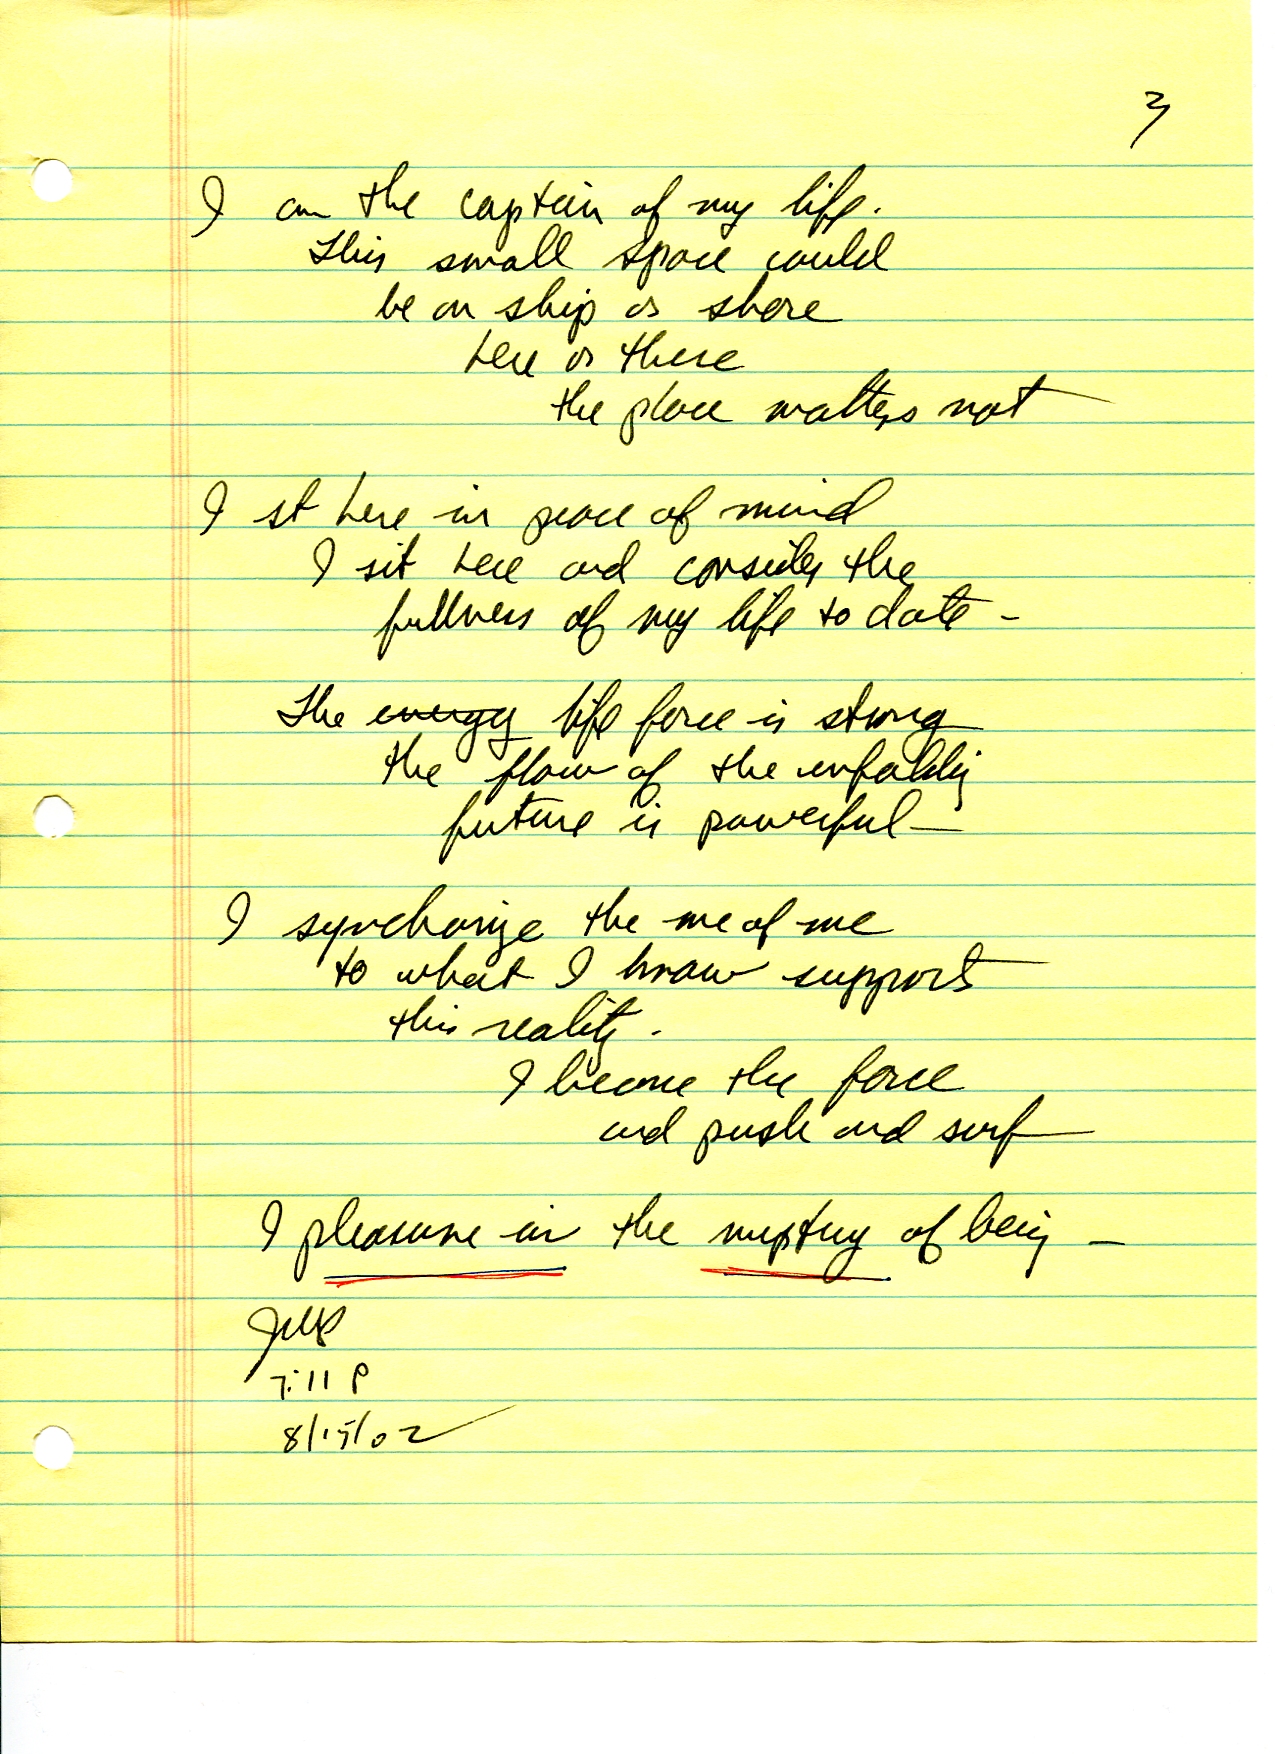 3
I am the captain of my life.
This small space could
be on ship or shore
here or there
the place matters not
I sit here in peace of mind
I sit here and consider the
fullness of my life to date -
The energy life force is strong
the flow of the unfolding
future is powerful -
I synchronize the me of me
to what I know supports
this reality.
I become the force
and push and surf
I pleasure in the mystery of being -
7:11 P
8/15/02